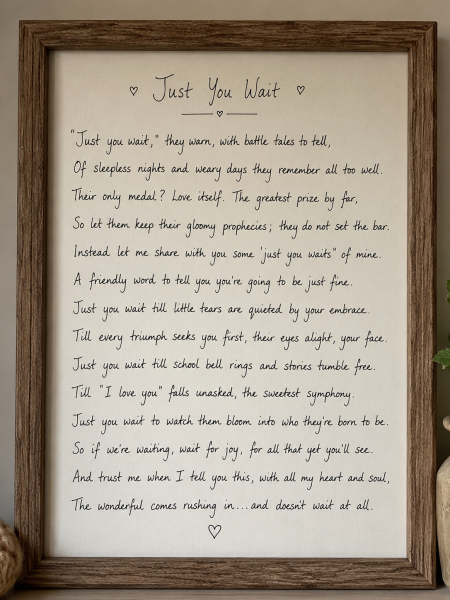 Just You Wait
"Just you wait," they warn, with battle tales to tell,
Of sleepless nights and weary days they remember all too well.
Their only medal? Love itself. The greatest prize by far,
So let them keep their gloomy prophecies; they do not set the bar.
Instead let me share with you some 'just you waits" of mine.
A friendly word to tell you you're going to be just fine.
Just you wait till little tears are quieted by your embrace.
Till every triumph seeks you first, their eyes alight, your face.
Just you wait till school bell rings and stories tumble free.
Till "I love you" falls unasked, the sweetest symphony.
Just you wait to watch them bloom into who they're born to be.
So if we're waiting, wait for joy, for all that yet you'll see.
And trust me when I tell you this, with all my heart and soul,
The wonderful comes rushing in...and doesn't wait at all.